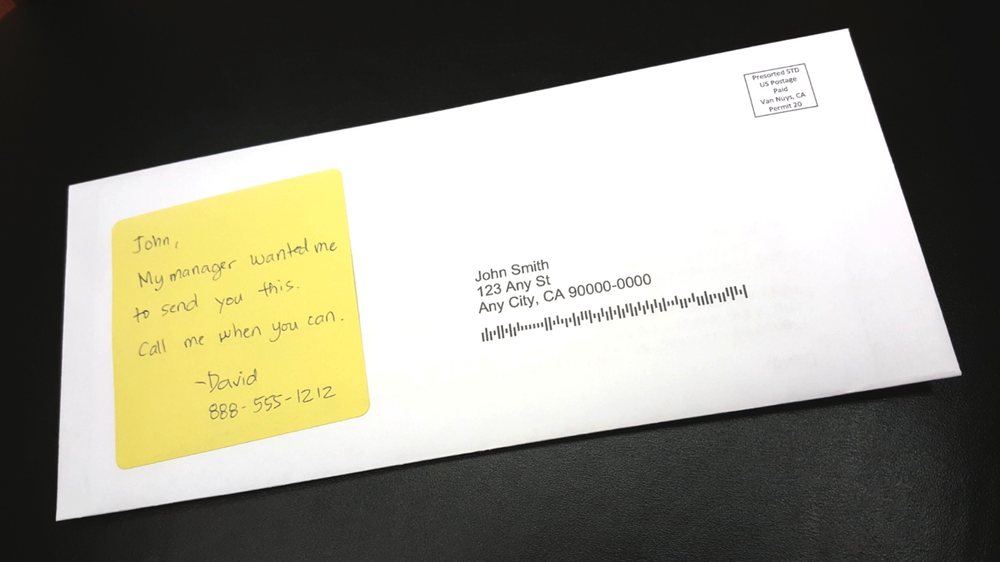 Presorted STD
US Postage
Paid
Van Nuys, CA
Permit 20
John,
My manager wanted me
to send you this.
Call me when you can.
-David
888-555-1212
John Smith
123 Any St
Any City, CA 90000-0000